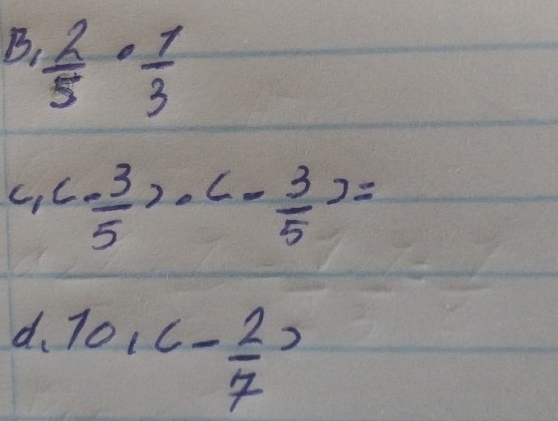 B, 2/5 · 1/3
c, (-3/5) · (-3/5) =
d. 10 · (-2/7)